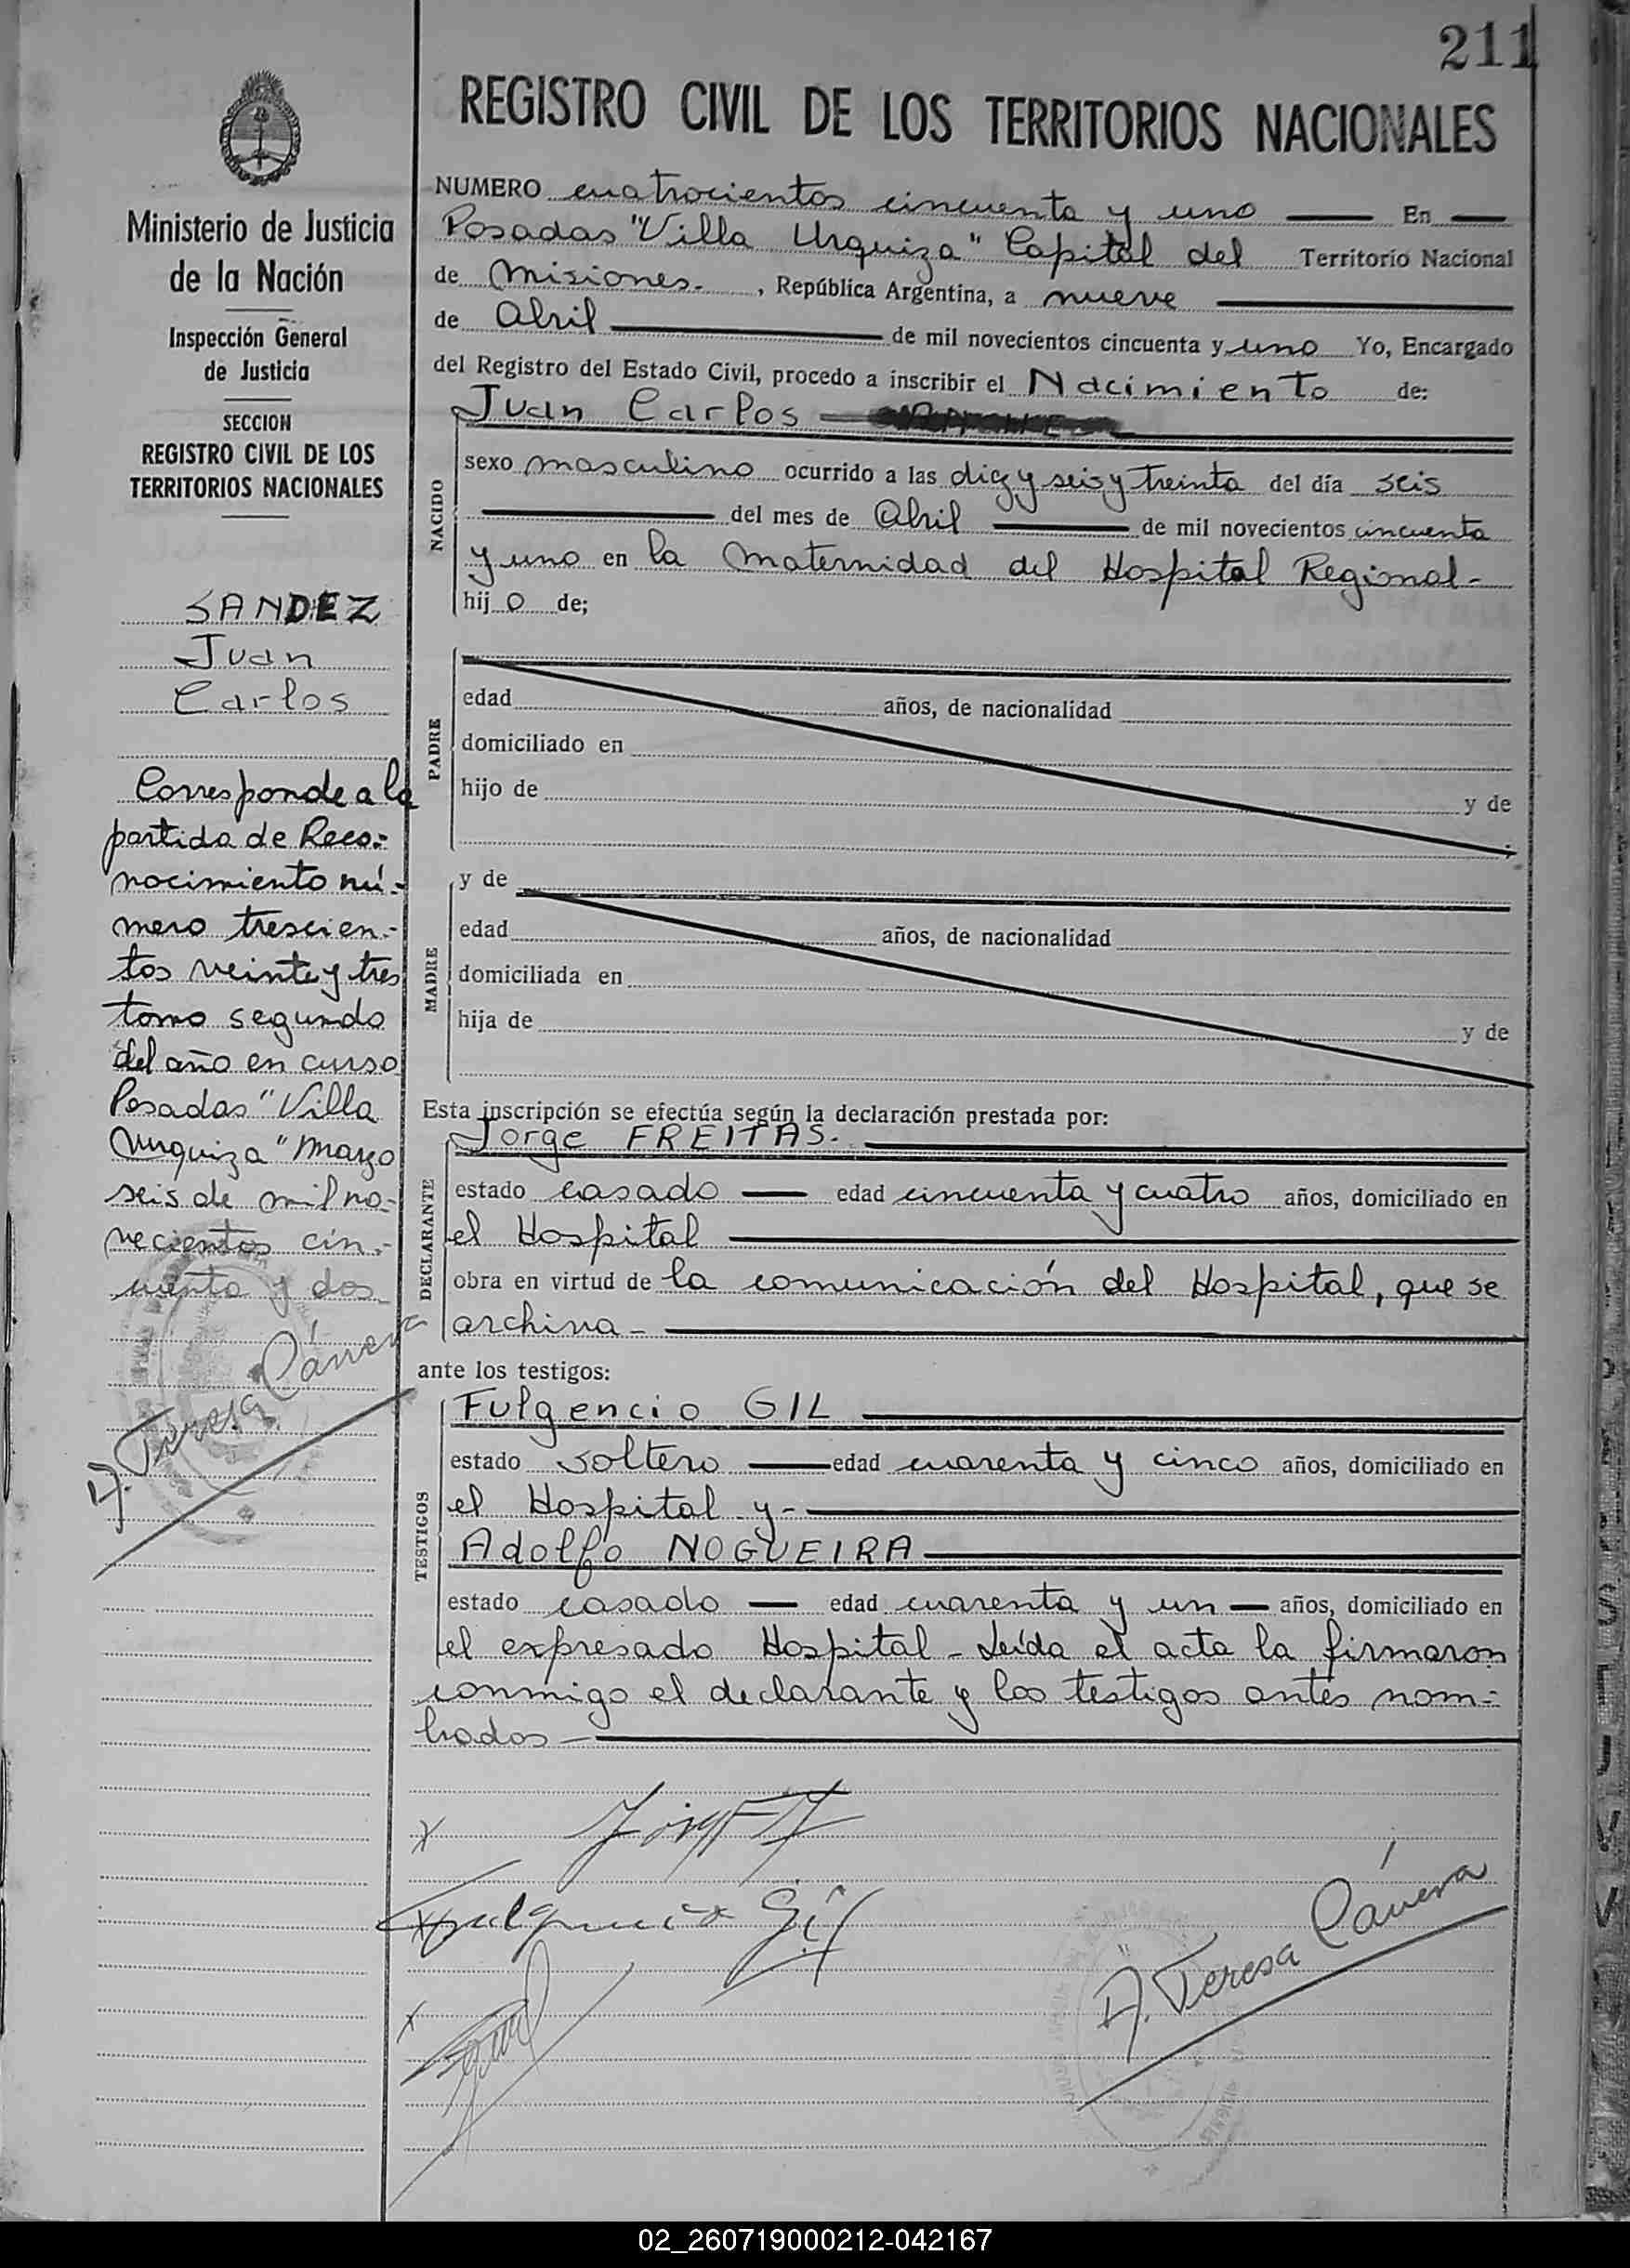 211
REGISTRO CIVIL DE LOS TERRITORIOS NACIONALES
Ministerio de Justicia
de la Nación
Inspección General
de Justicia
SECCION
REGISTRO CIVIL DE LOS
TERRITORIOS NACIONALES
SANDEZ
Juan
Carlos
Corresponde a la
partida de Reco-
nocimiento nú-
mero trescien-
tos veinte y tres
tomo segundo
del año en curso
Posadas "Villa
Urquiza" Marzo
seis de mil no-
vecientos cin-
cuenta y dos
A. Teresa Cánera
NUMERO cuatrocientos cincuenta y uno En
Posadas "Villa Urquiza" Capital del Territorio Nacional
de Misiones. , República Argentina, a nueve
de Abril de mil novecientos cincuenta y uno Yo, Encargado
del Registro del Estado Civil, procedo a inscribir el Nacimiento de:
Juan Carlos
NACIDO
sexo masculino ocurrido a las diez y seis y treinta del día seis
del mes de Abril de mil novecientos cincuenta
y uno en la Maternidad del Hospital Regional-
hijo de;
PADRE
edad años, de nacionalidad
domiciliado en
hijo de y de
MADRE
y de
edad años, de nacionalidad
domiciliada en
hija de y de
Esta inscripción se efectúa según la declaración prestada por:
Jorge FREITAS.
DECLARANTE
estado casado edad cincuenta y cuatro años, domiciliado en
el Hospital
obra en virtud de la comunicación del Hospital, que se
archiva-
ante los testigos:
TESTIGOS
Fulgencio GIL
estado soltero edad cuarenta y cinco años, domiciliado en
el Hospital y-
Adolfo NOGUEIRA
estado casado edad cuarenta y un años, domiciliado en
el expresado Hospital - Leída el acta la firmaron
conmigo el declarante y los testigos antes nom-
brados-
x
x Fulgencio Gil
x
A. Teresa Cánera
02_260719000212-042167